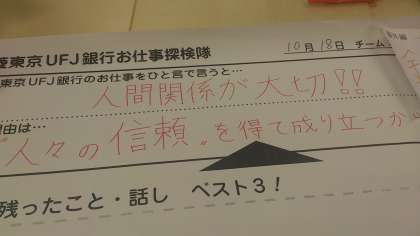 菱東京UFJ銀行お仕事探検隊
10月18日 チーム
東京UFJ銀行のお仕事をひと言で言うと…
人間関係が大切!!
理由は…
"人々の信頼"を得て成り立つから
残ったこと・話し ベスト3!